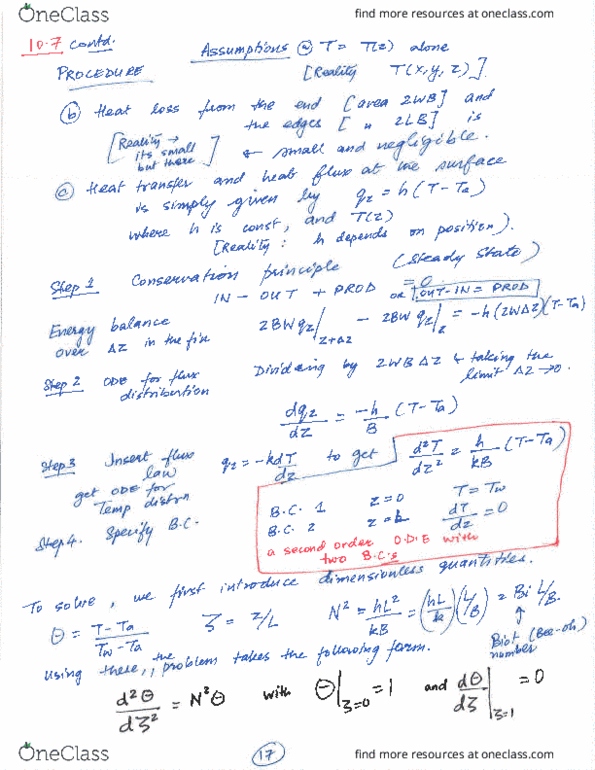 OneClass
find more resources at oneclass.com
10.7 contd.
Assumptions ⓐ T = T(z) alone
PROCEDURE
[Reality T(x,y,z)].
ⓑ Heat loss from the end [area 2WB] and
the edges [ " 2LB] is
[Reality → its small but there] ← small and negligible.
Heat transfer and heat flux at the surface
is simply given by q_z = h(T-Ta)
where h is const, and T(z)
[Reality: h depends on position).
Step 1 Conservation principle (Steady State)
IN - OUT + PROD = 0 OR OUT-IN = PROD
Energy balance over ΔZ in the fin 2BWq_z|_{z+Δz} - 2BW q_z|_z = -h(2WΔZ)(T-Ta)
Step 2 ODE for flux distribution Dividing by 2WBΔZ & taking the limit ΔZ→0.
dq_z/dz = -h/B (T-Ta)
Step 3 Insert flux law q_z = -k dT/dz to get d²T/dz² = h/kB (T-Ta)
get ODE for Temp distbn
B.C. 1 z=0 T = Tw
Step 4. Specify B.C.
B.C. 2 z=L dT/dz = 0
a second order O.D.E with
two B.C.s
To solve, we first introduce dimensionless quantities.
Θ = (T-Ta)/(Tw-Ta) ζ = z/L N² = hL²/kB = (hL/k)(L/B) = Bi L/B.
Biot (Bee-oh) number
Using these, the problem takes the following form.
d²Θ/dζ² = N²Θ with Θ|_{ζ=0} = 1 and dΘ/dζ|_{ζ=1} = 0
17
OneClass
find more resources at oneclass.com